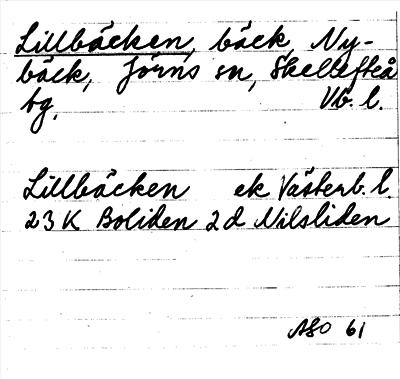 Lillbäcken, bäck, Ny-
bäck, Jörns sn, Skellefteå
tg, Vb. l.
Lillbäcken ek Västerb. l.
23 K Boliden 2 d Nilsliden
ASO 61